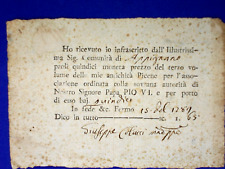 Ho ricevuto lo infrascritto dall'Illustrissi-
ma Sig. Comunità di Appignano
paoli quindici moneta prezzo del terzo vo-
lume delle mie antichità Picene per l'asso-
ciazione ordinata colla sovrana autorità di
Nostro Signore Papa PIO VI. e per porto
di esso baj. quindici
In fede &c. Fermo 15. 1789
Dico in tutto 1. 65
Giuseppe Colucci